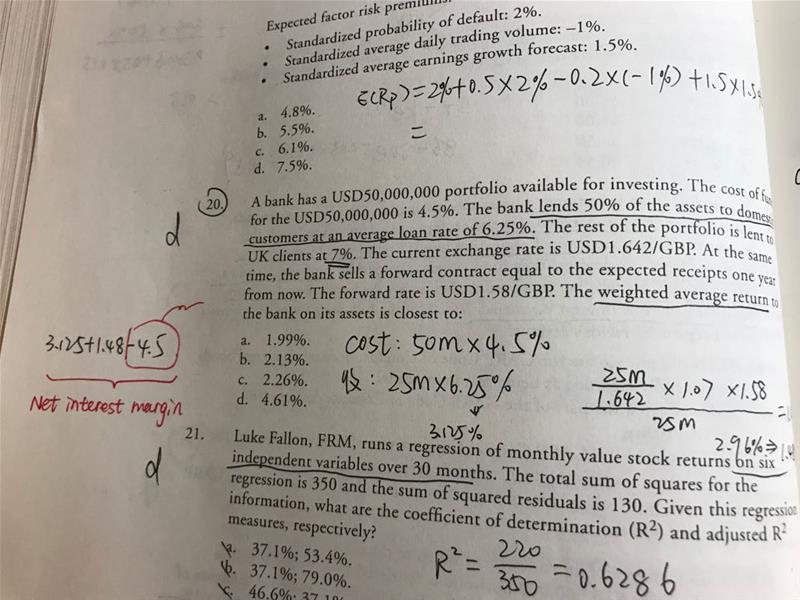 Expected factor risk premiums:
• Standardized probability of default: 2%.
• Standardized average daily trading volume: –1%.
• Standardized average earnings growth forecast: 1.5%.
E(Rp) = 2% + 0.5 × 2% − 0.2 × (−1%) + 1.5 × 1.5%
=
a. 4.8%.
b. 5.5%.
c. 6.1%.
d. 7.5%.
d
20. A bank has a USD50,000,000 portfolio available for investing. The cost of
for the USD50,000,000 is 4.5%. The bank lends 50% of the assets to
customers at an average loan rate of 6.25%. The rest of the portfolio is lent to
UK clients at 7%. The current exchange rate is USD1.642/GBP. At the same
time, the bank sells a forward contract equal to the expected receipts one year
from now. The forward rate is USD1.58/GBP. The weighted average return to
the bank on its assets is closest to:
a. 1.99%.
b. 2.13%.
c. 2.26%.
d. 4.61%.
cost: 50m × 4.5%
收: 25M × 6.25%
3.125%
25M
1.642
× 1.07 × 1.58
25M
=
2.96% ⇒
3.125+1.48-4.5
Net interest margin
d
21. Luke Fallon, FRM, runs a regression of monthly value stock returns on six
independent variables over 30 months. The total sum of squares for the
regression is 350 and the sum of squared residuals is 130. Given this regression
information, what are the coefficient of determination (R²) and adjusted R²
measures, respectively?
a. 37.1%; 53.4%.
b. 37.1%; 79.0%.
c. 46.6%; 37.1%
R² = 220/350 = 0.6286